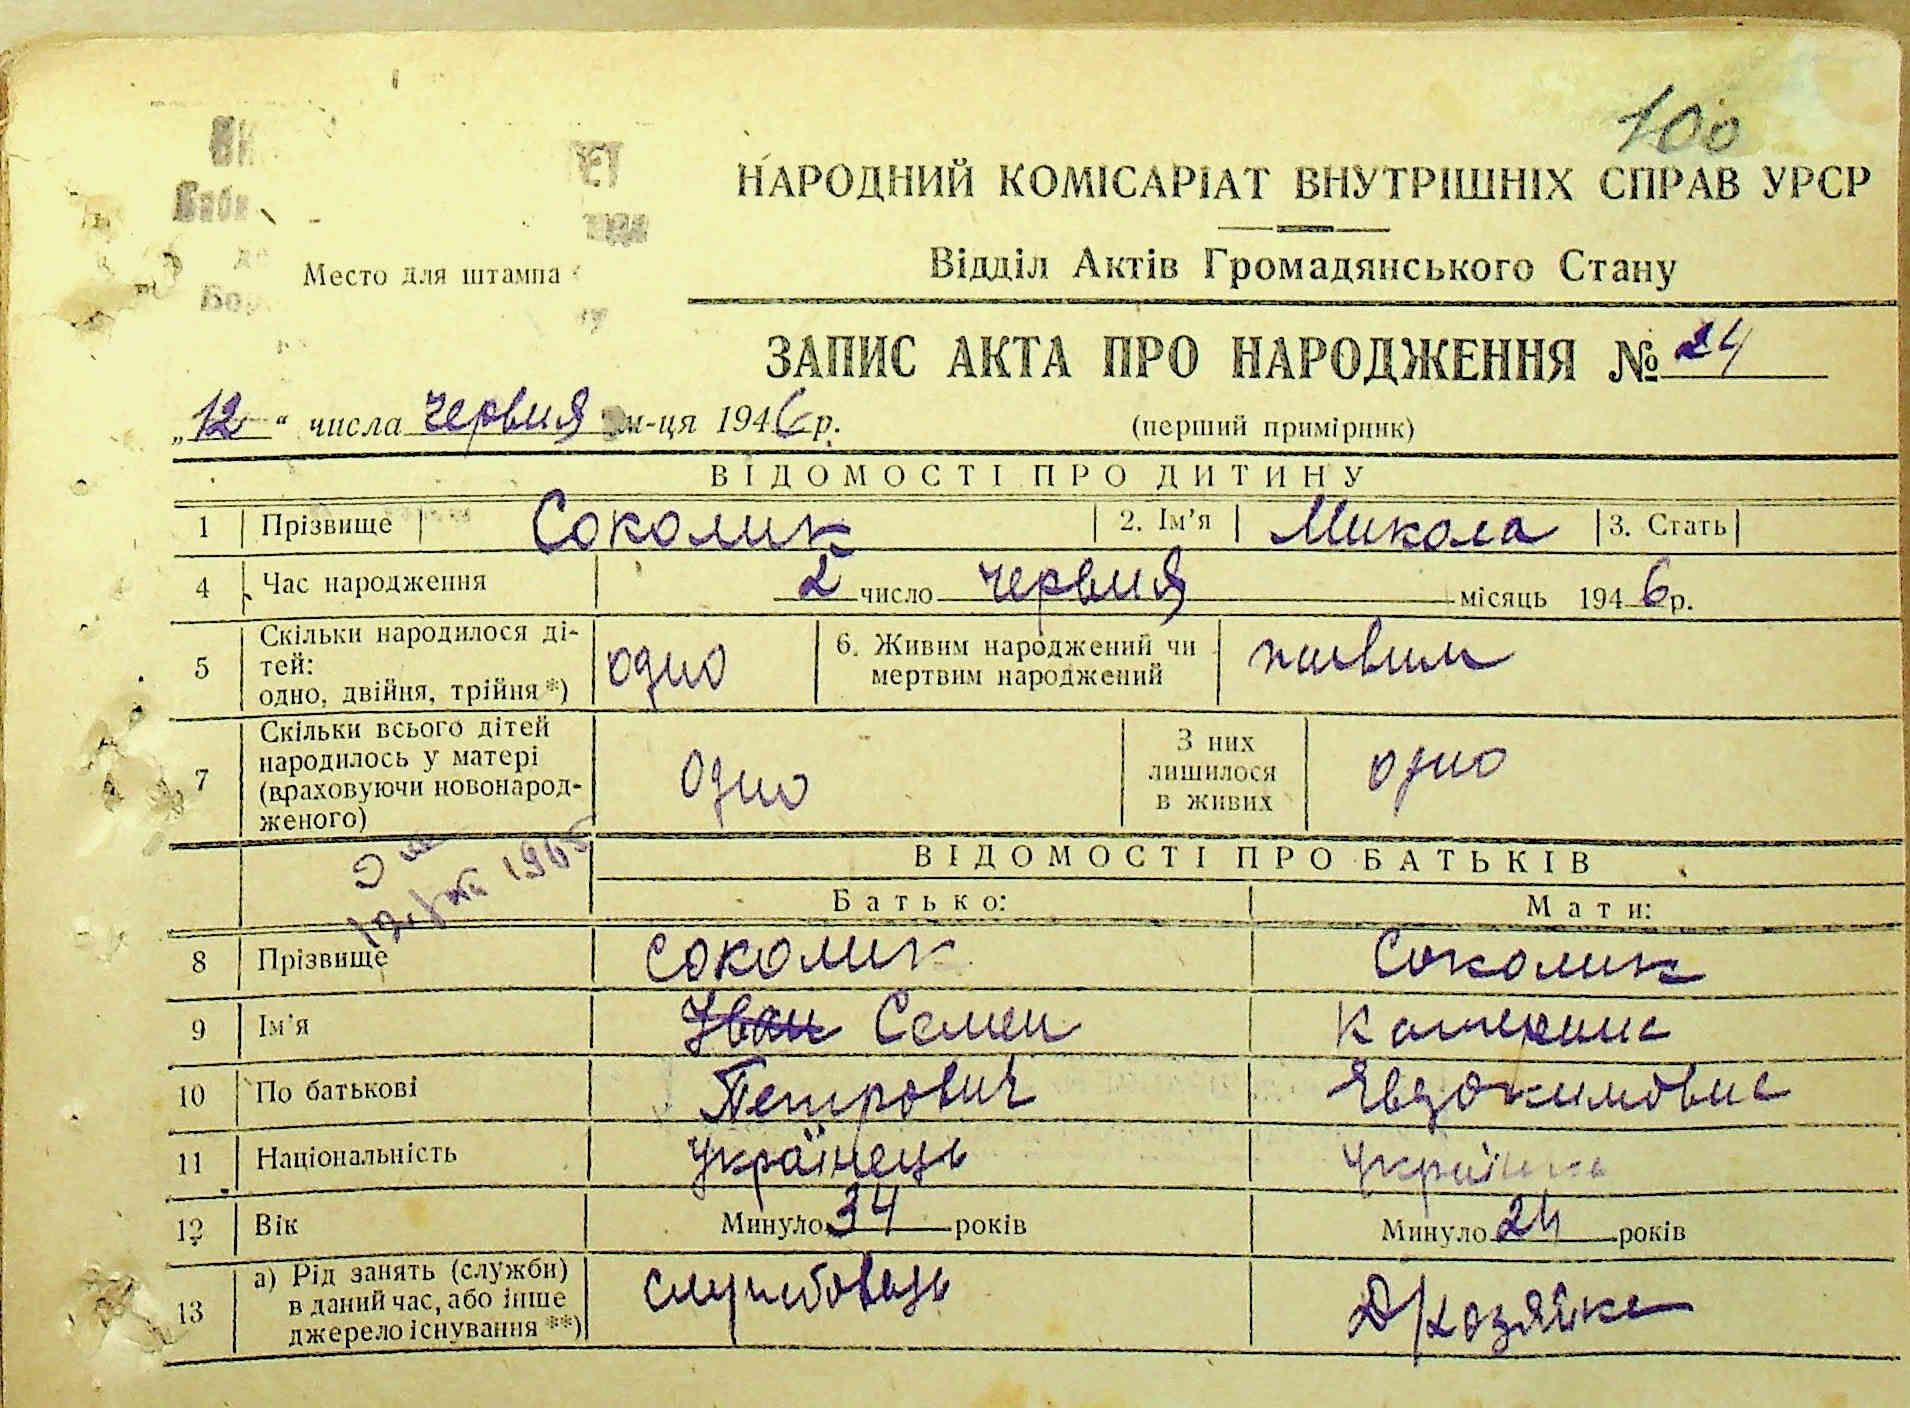 100
НАРОДНИЙ КОМІСАРІАТ ВНУТРІШНІХ СПРАВ УРСР
Место для штампа
Відділ Актів Громадянського Стану
ЗАПИС АКТА ПРО НАРОДЖЕННЯ № 24
„12“ числа червня м-ця 1946 р.
(перший примірник)
ВІДОМОСТІ ПРО ДИТИНУ
1 Прізвище Соколик 2. Ім'я Микола 3. Стать
4 Час народження 2 число червня місяць 1946 р.
5 Скільки народилося ді-
тей:
одно, двійня, трійня *) одно
6. Живим народжений чи
мертвим народжений живим
7 Скільки всього дітей
народилось у матері
(враховуючи новонарод-
женого) одно
З них
лишилося
в живих одно
ВІДОМОСТІ ПРО БАТЬКІВ
Батько: Мати:
8 Прізвище Соколик Соколик
9 Ім'я Іван Семен Катерина
10 По батькові Петрович Явдокимовна
11 Національність українець українка
12 Вік Минуло 34 років Минуло 24 років
13 а) Рід занять (служби)
в даний час, або інше
джерело існування **) службовець Д/хозяйка